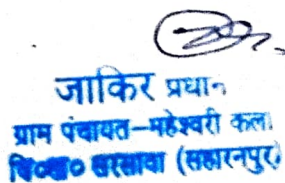 जाकिर प्रधान
ग्राम पंचायत-महेश्वरी कला
वि०ख० सरसावा (सहारनपुर)